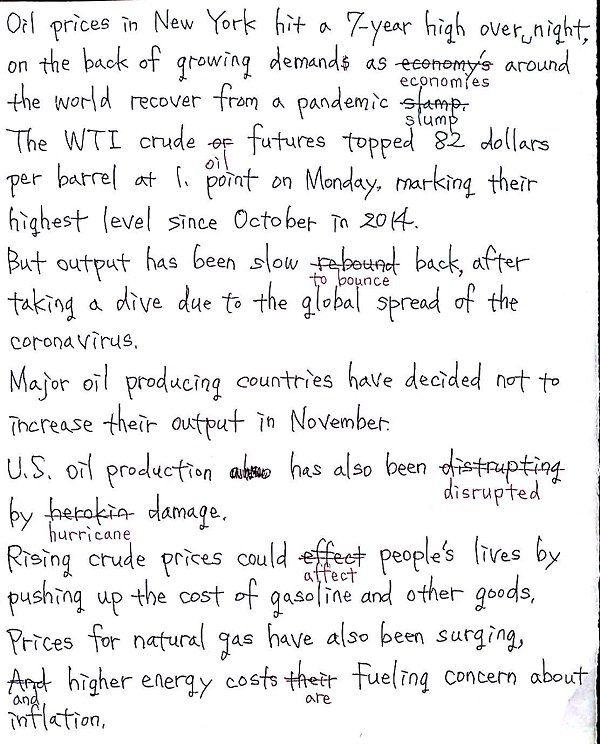 Oil prices in New York hit a 7-year high over night,
on the back of growing demands as economy's around
economies
the world recover from a pandemic slamp.
slump
The WTI crude of futures topped 82 dollars
oil
per barrel at 1. point on Monday, marking their
highest level since October in 2014.
But output has been slow rebound back, after
to bounce
taking a dive due to the global spread of the
coronavirus.
Major oil producing countries have decided not to
increase their output in November.
U.S. oil production has also been distrupting
disrupted
by herokin damage.
hurricane
Rising crude prices could effect people's lives by
affect
pushing up the cost of gasoline and other goods.
Prices for natural gas have also been surging,
And higher energy costs their fueling concern about
and are
inflation.